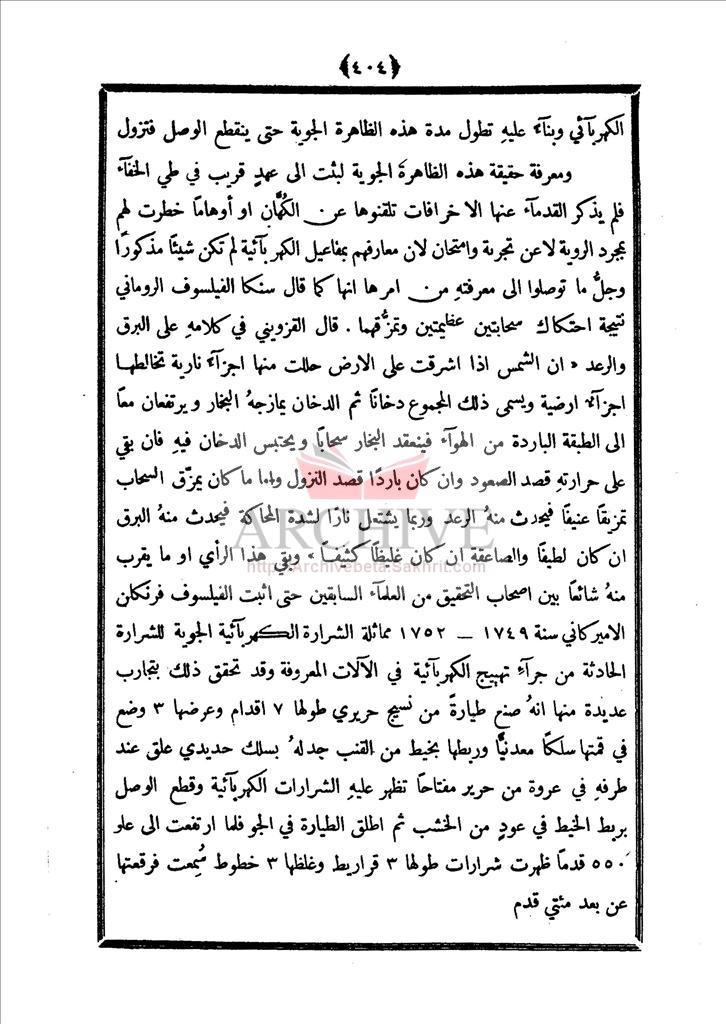 ﴿٤٠٤﴾
الكهربآئي وبنآء عليهِ تطول مدة هذه الظاهرة الجوية حتى ينقطع الوصل فتزول
ومعرفة حقيقة هذه الظاهرة الجوية لبثت الى عهدٍ قريب في طي الخفآء
فلم يذكر القدمآء عنها الا خرافات تلقنوها عن الكُهَّان او أوهامًا خطرت لهم
بمجرد الروية لا عن تجربة وامتحان لان معارفهم بمفاعيل الكهربآئية لم تكن شيئًا مذكورًا
وجلُّ ما توصلوا الى معرفتهِ من امرها انها كما قال سنكا الفيلسوف الروماني
نتيجة احتكاك سحابتين عظيمتين وتمزُّقهما . قال القزويني في كلامهِ على البرق
والرعد « ان الشمس اذا اشرقت على الارض حللت منها اجزآء نارية تخالطهـا
اجزآء ارضية ويسمى ذلك المجموع دخانًا ثم الدخان يمازجهُ البخار ويرتفعان معًا
الى الطبقة الباردة من الهوآء فينعقد البخار سحابًا ويحتبس الدخان فيهِ فان بقي
على حرارتهِ قصد الصعود وان كان باردًا قصد النزول وايا ما كان يمزّق السحاب
تمزيقًا عنيفًا فيحدث منهُ الرعد وربما يشتعل نارًا لشدة المحاكة فيحدث منهُ البرق
ان كان لطيفًا والصاعقة ان كان غليظًا كثيفًـا » وبقي هذا الرأي او ما يقرب
منهُ شائعًا بين اصحاب التحقيق من العلمآء السابقين حتى اثبت الفيلسوف فرنكلن
الاميركاني سنة ١٧٤٩ – ١٧٥٢ مماثلة الشرارة الكهربآئية الجوية للشرارة
الحادثة من جرآءِ تهييج الكهربآئية في الآلات المعروفة وقد تحقق ذلك بتجارب
عديدة منها انهُ صنع طيارةً من نسيج حريري طولها ٧ اقدام وعرضها ٣ وضع
في قمتها سلكًا معدنيًّا وربطها بخيط من القنب جدلهُ بسلك حديدي علق عند
طرفهِ في عروة من حرير مفتاحًا تظهر عليهِ الشرارات الكهربآئية وقطع الوصل
بربط الخيط في عودٍ من الخشب ثم اطلق الطيارة في الجو فلما ارتفعت الى علو
٥٥٠ قدمًا ظهرت شرارات طولها ٣ قراريط وغلظها ٣ خطوط سُمِعت فرقعتها
عن بعد مئتي قدم
ARCHIVE
http://Archivebeta.Sakhrit.com